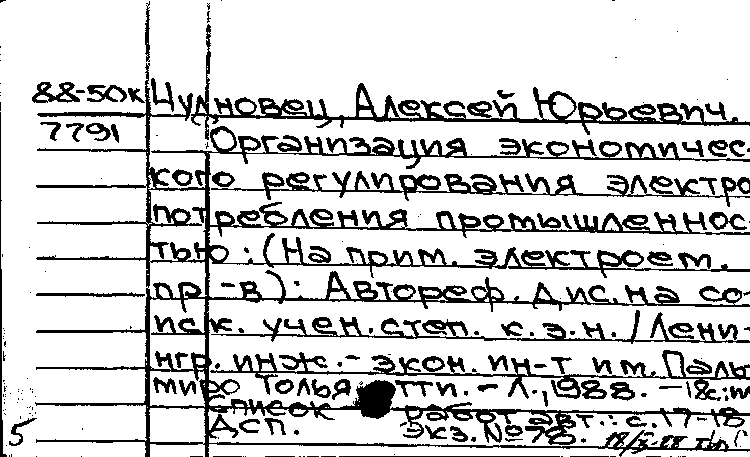 88-50к
7791
Чулновец, Алексей Юрьевич.
Организация экономичес-
кого регулирования электро
потребления промышленнос-
тью : (На прим. электроем.
пр-в) : Автореф. дис. на со-
иск. учен. степ. к. э. н. / Лени-
нгр. инж.-экон. ин-т им. Паль
миро Толья тти. - Л., 1988. - 18с.;
Список работ авт.: с. 17-18
ДСП. Экз. № 78.
5